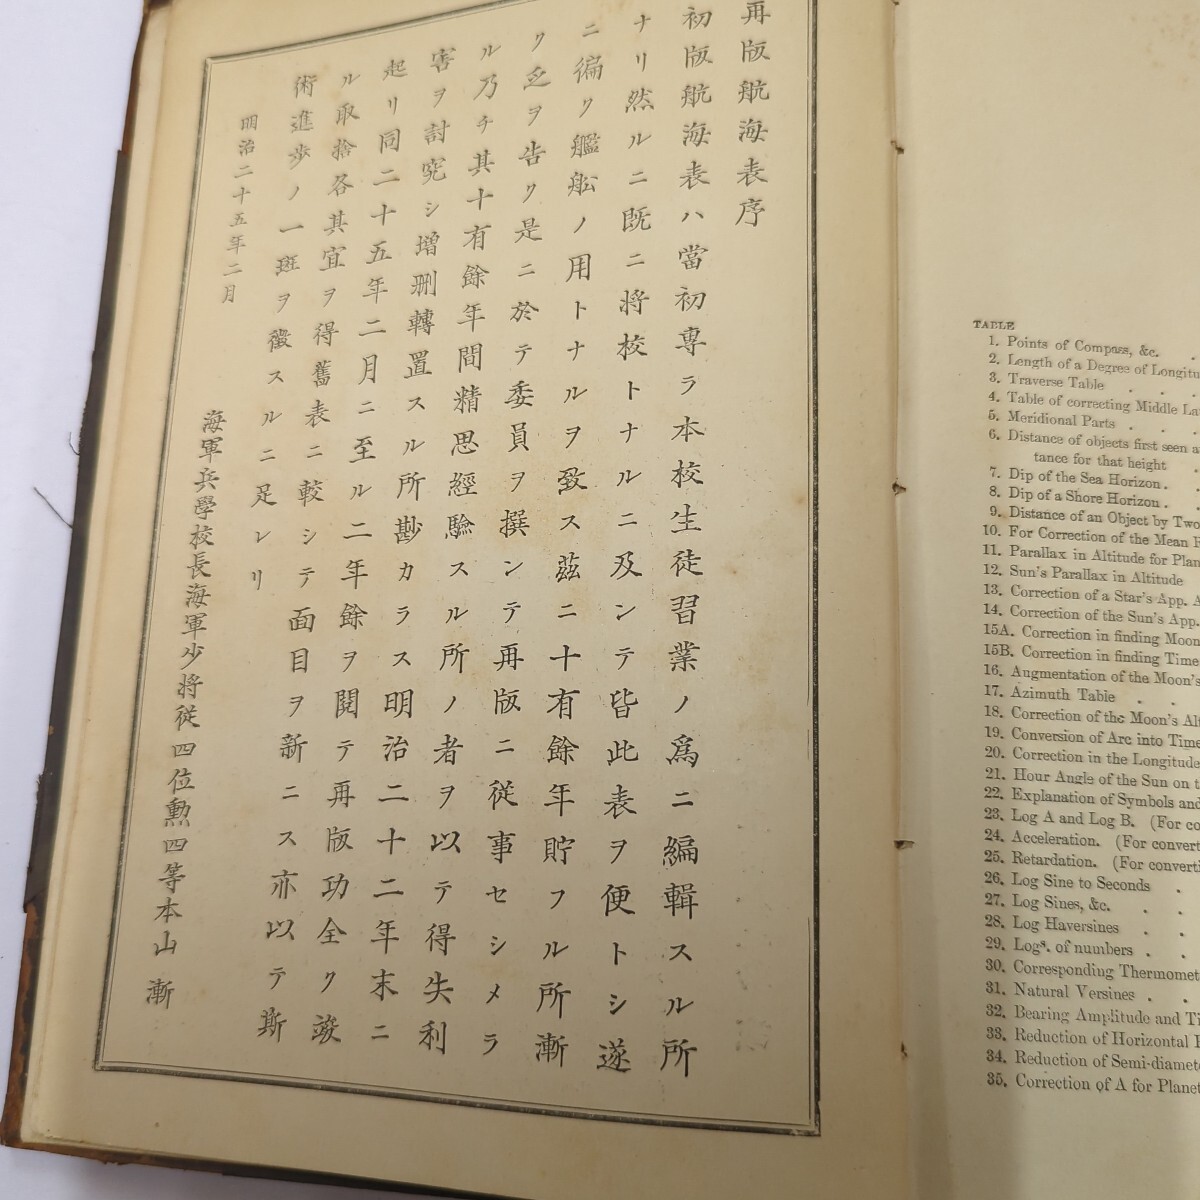 再版航海表序
初版航海表ハ當初專ラ本校生徒習業ノ爲ニ編輯スル所
ナリ然ルニ既ニ將校トナルニ及ンテ皆此表ヲ便トシ遂
ニ徧ク艦船ノ用トナルヲ致ス茲ニ十有餘年貯フル所漸
ク乏ヲ告ク是ニ於テ委員ヲ撰ンテ再版ニ從事セシメラ
ル乃チ其十有餘年間精思經驗スル所ノ者ヲ以テ得失利
害ヲ討究シ增刪轉置スル所尠カラス明治二十二年末ニ
起リ同二十五年二月ニ至ル二年餘ヲ閱テ再版功全ク竣
ル取捨各其宜ヲ得舊表ニ較シテ面目ヲ新ニス亦以テ斯
術進歩ノ一斑ヲ徵スルニ足レリ
明治二十五年二月
海軍兵學校長海軍少將從四位勲四等本山漸
TABLE
1. Points of Compass, &c.
2. Length of a Degree of
3. Traverse Table
4. Table of correcting Middle
5. Meridional Parts
6. Distance of objects first seen
tance for that height
7. Dip of the Sea Horizon.
8. Dip of a Shore Horizon.
9. Distance of an Object by Two
10. For Correction of the Mean
11. Parallax in Altitude for
12. Sun's Parallax in Altitude
13. Correction of a Star's App.
14. Correction of the Sun's App.
15A. Correction in finding
15B. Correction in finding Time
16. Augmentation of the Moon's
17. Azimuth Table
18. Correction of the Moon's
19. Conversion of Arc into Time
20. Correction in the Longitude
21. Hour Angle of the Sun on
22. Explanation of Symbols
23. Log A and Log B. (For
24. Acceleration. (For
25. Retardation. (For
26. Log Sine to Seconds
27. Log Sines, &c.
28. Log Haversines
29. Logs. of numbers
30. Corresponding
31. Natural Versines
32. Bearing Amplitude and
33. Reduction of Horizontal
34. Reduction of
35. Correction of A for